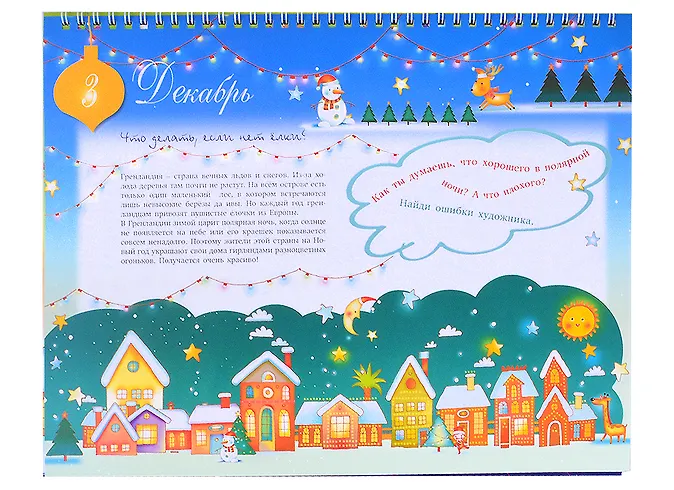 3
Декабрь
Что делать, если нет ёлки?
Гренландия – страна вечных льдов и снегов. Из-за хо-
лода деревья там почти не растут. На всём острове есть
только один маленький лес, в котором встречаются
лишь невысокие берёзы да ивы. Но каждый год грен-
ландцам привозят пушистые ёлочки из Европы.
В Гренландии зимой царит полярная ночь, когда солнце
не появляется на небе или его краешек показывается
совсем ненадолго. Поэтому жители этой страны на Но-
вый год украшают свои дома гирляндами разноцветных
огоньков. Получается очень красиво!
Как ты думаешь, что хорошего в полярной
ночи? А что плохого?
Найди ошибки художника.